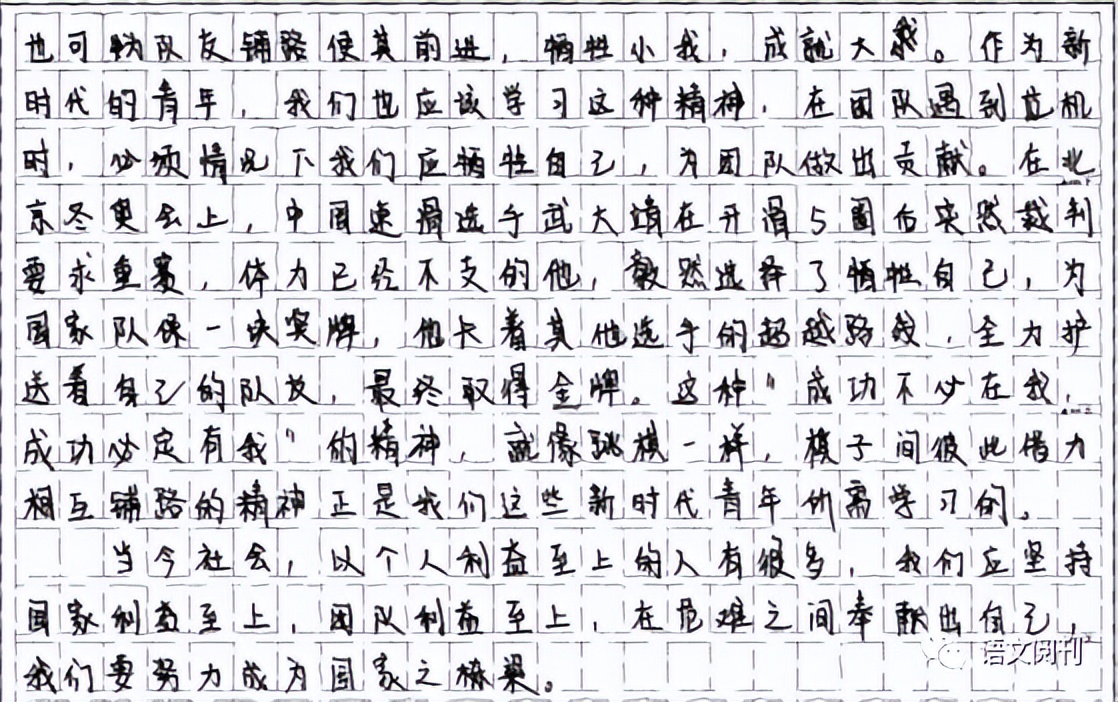 也可为队友铺路使其前进，牺牲小我，成就大我。作为新
时代的青年，我们也应该学习这种精神，在团队遇到危机
时，必须情况下我们应牺牲自己，为团队做出贡献。在北
京冬奥会上，中国速滑选手武大靖在开滑5圈后突然裁判
要求重赛，体力已经不支的他，毅然选择了牺牲自己，为
国家队保一块奖牌，他卡着其他选手的超越路线，全力护
送着自己的队友，最终取得金牌。这种"成功不必在我，
成功必定有我"的精神，就像跳棋一样，棋子间彼此借力
相互铺路的精神正是我们这些新时代青年所需学习的。
当今社会，以个人利益至上的人有很多，我们应坚持
国家利益至上，团队利益至上，在危难之间奉献出自己，
我们要努力成为国家之栋梁。
语文阅刊